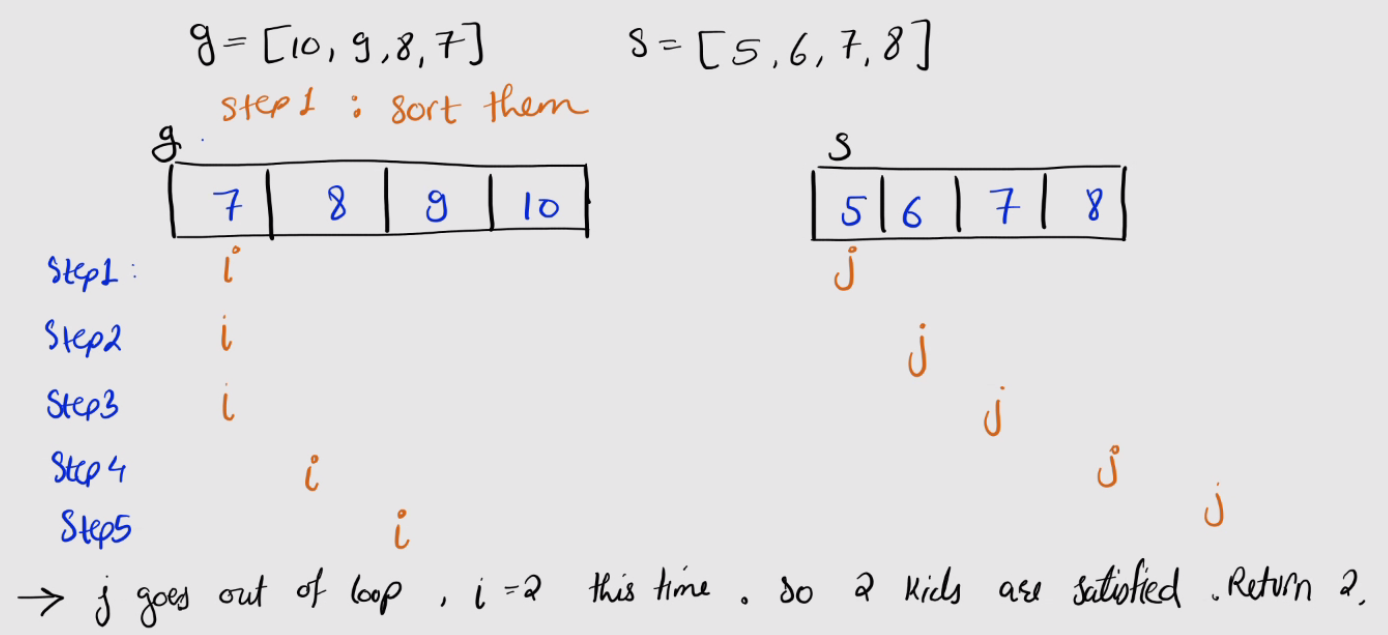 g = [10, 9, 8, 7] s = [5, 6, 7, 8]
step1 : sort them
g s
7 8 9 10 5 6 7 8
Step1: i j
Step2 i j
Step3 i j
Step4 i j
Step5 i j
→ j goes out of loop, i = 2 this time. so 2 kids are satisfied. Return 2.